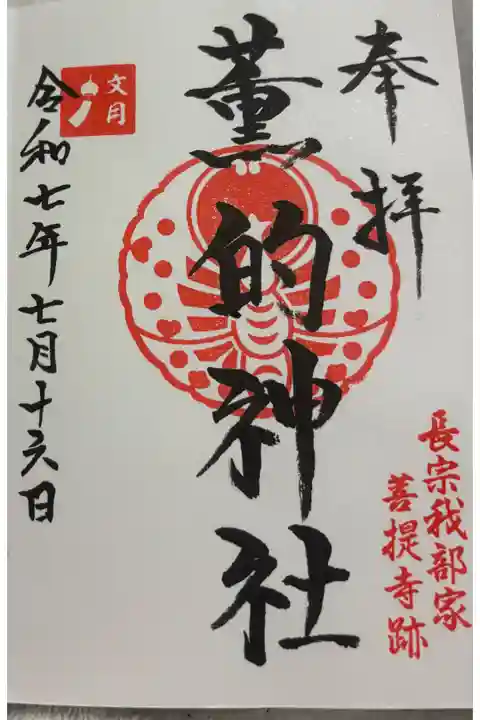 奉拝
薫的神社
長宗我部家
菩提寺跡
文月
令和七年七月十六日